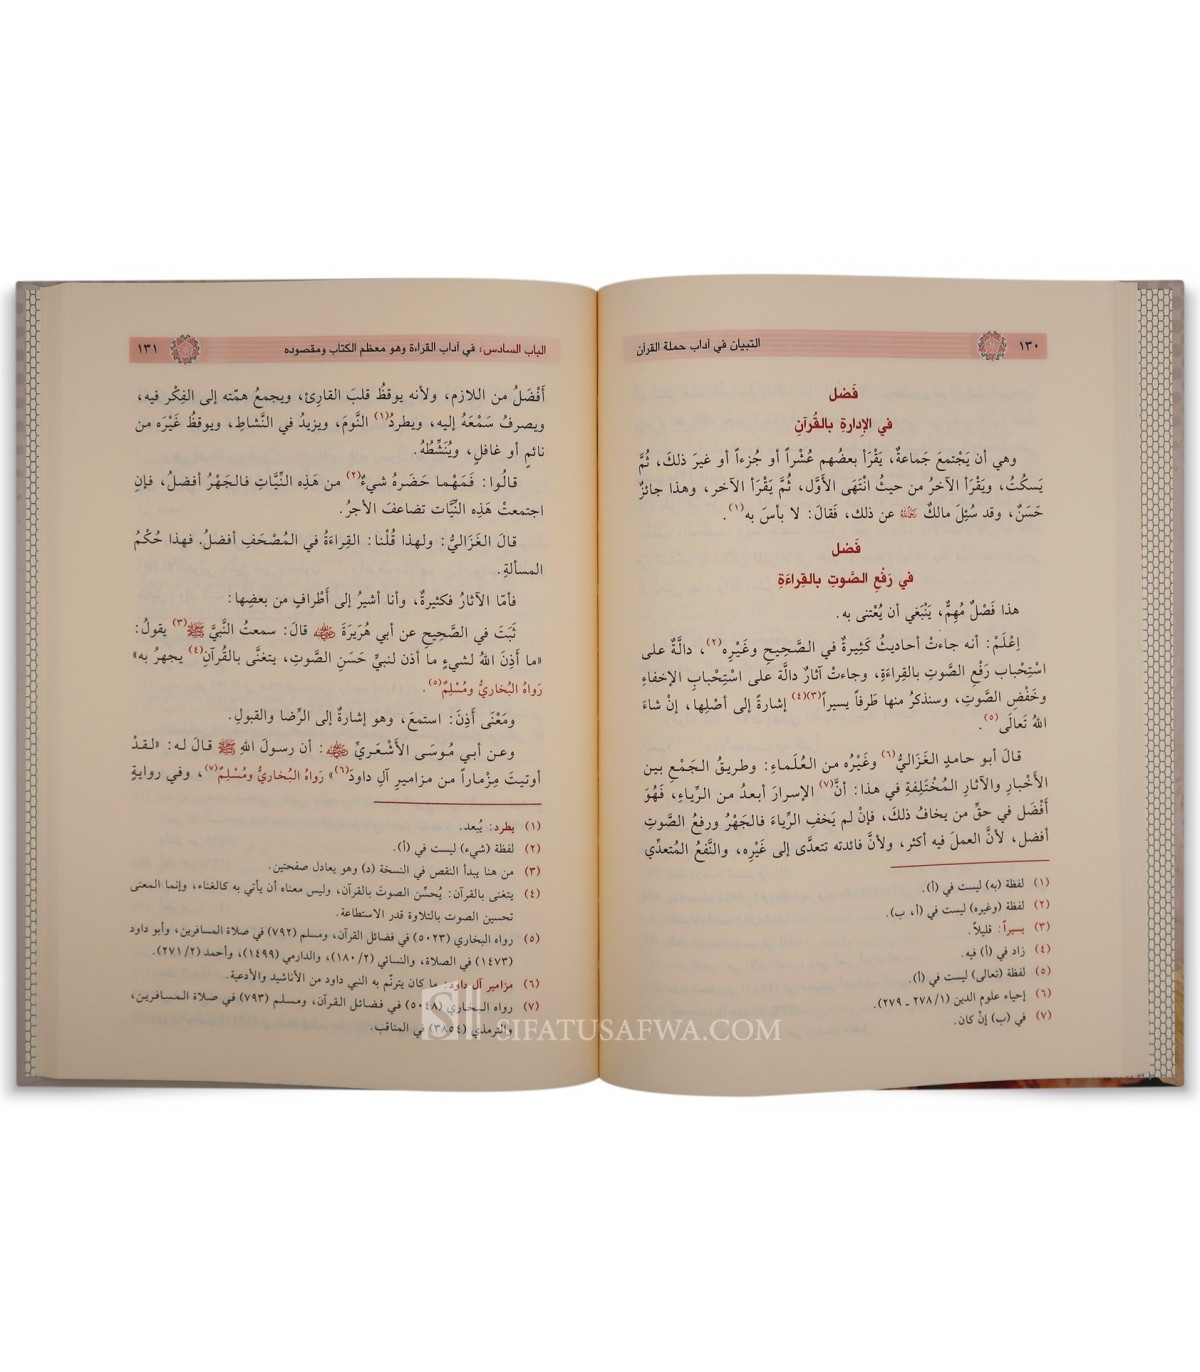 ١٣٠ التبيان في آداب حملة القرآن
فَصْل
في الإدارةِ بالقُرآنِ
وهي أن يَجْتمعَ جَماعةٌ، يَقْرَأ بعضُهم عُشْراً أو جُزءاً أو غيرَ ذلكَ، ثُمَّ
يَسكتُ، ويَقْرَأ الآخرُ من حيثُ انْتَهَى الأوَّل، ثُمَّ يَقْرَأ الآخر، وهذا جائزٌ
حَسَنٌ، وقد سُئِلَ مالكٌ رحمه الله عن ذلك، فَقالَ: لا بأسَ به(١).
فَصْل
في رَفْعِ الصَّوتِ بالقِراءَةِ
هذا فَصْلٌ مُهِمٌّ، يَنْبَغي أن يُعْتنى به.
اِعْلَمْ: أنه جاءتْ أحاديثُ كَثِيرةٌ في الصَّحِيحِ وغَيْرِه(٢)، دالَّةٌ على
اسْتِحْباب رَفْعِ الصَّوتِ بالقِراءَةِ، وجاءتْ آثارٌ دالَّة على اسْتِحْبابِ الإخفاءِ
وخَفْضِ الصَّوتِ، وسنذكرُ منها طَرفاً يسيراً(٣)(٤) إشارةً إلى أصْلِها، إنْ شاءَ
اللهُ تَعالَى(٥).
قالَ أبو حامدٍ الغَزاليُّ(٦) وغَيْرُه من العُلَماءِ: وطريقُ الجَمْعِ بين
الأخْبارِ والآثارِ المُخْتَلِفةِ في هذا: أنَّ(٧) الإسرارَ أبعدُ من الرِّياءِ، فَهُوَ
أَفْضَل في حقِّ من يخافُ ذلكَ، فإنْ لم يَخفِ الرِّياءَ فالجَهْرُ ورفعُ الصَّوتِ
أفضل، لأنَّ العملَ فيه أكثر، ولأنَّ فائدته تتعدَّى إلى غَيْرِه، والنَّفعُ المُتعدِّي
(١) لفظة (به) ليست في (أ).
(٢) لفظة (وغيره) ليست في (أ، ب).
(٣) يسيراً: قليلاً.
(٤) زاد في (أ) فيه.
(٥) لفظة (تعالى) ليست في (أ).
(٦) إحياء علوم الدين (١/ ٢٧٨ ـ ٢٧٩).
(٧) في (ب) إنْ كان.
الباب السادس: في آداب القراءة وهو معظم الكتاب ومقصوده ١٣١
أَفْضَلُ من اللازم، ولأنه يوقظُ قلبَ القارئ، ويجمعُ همّته إلى الفِكْر فيه،
ويصرفُ سَمْعَهُ إليه، ويطردُ(١) النَّومَ، ويزيدُ في النَّشاطِ، ويوقظُ غَيْرَه من
نائمٍ أو غافلٍ، ويُنَشِّطُهُ.
قالُوا: فَمَهْما حَضَرهُ شيءٌ(٢) من هَذِه النِّيَّاتِ فالجَهْرُ أفضلُ، فإنِ
اجتمعتْ هَذِه النِّيَّات تضاعفَ الأجرُ.
قالَ الغَزاليُّ: ولهذا قُلْنا: القِراءَةُ في المُصْحَفِ أفضلُ. فهذا حُكْمُ
المسألةِ.
فأمّا الآثارُ فكثيرةٌ، وأنا أشيرُ إلى أَطْرافٍ من بعضِها:
ثَبَتَ في الصَّحِيحِ عن أبي هُرَيرَةَ رضي الله عنه قالَ: سمعتُ النَّبيَّ ﷺ(٣) يقولُ:
«ما أَذِنَ اللهُ لشيءٍ ما أذن لنبيٍّ حَسَنِ الصَّوتِ، يتغنَّى بالقُرآنِ(٤) يجهرُ به»
رَواهُ البُخاريُّ ومُسْلِمٌ(٥).
ومَعْنَى أَذِنَ: استمعَ، وهو إشارةٌ إلى الرِّضا والقبولِ.
وعن أبي مُوسَى الأشْعَريِّ رضي الله عنه: أن رسولَ اللهِ ﷺ قالَ له: «لقدْ
أوتيتَ مِزْماراً من مزاميرِ آلِ داودَ(٦)» رَواهُ البُخاريُّ ومُسْلِمٌ(٧)، وفي روايةٍ
(١) يطرد: يُبعد.
(٢) لفظة (شيء) ليست في (أ).
(٣) من هنا يبدأ النقص في النسخة (د) وهو يعادل صفحتين.
(٤) يتغنى بالقرآن: يُحسِّن الصوتَ بالقرآن، وليس معناه أن يأتي به كالغناء، وإنما المعنى
تحسين الصوت بالتلاوة قدر الاستطاعة.
(٥) رواه البخاري (٥٠٢٣) في فضائل القرآن، ومسلم (٧٩٢) في صلاة المسافرين، وأبو داود
(١٤٧٣) في الصلاة، والنسائي (٢/ ١٨٠)، والدارمي (١٤٩٩)، وأحمد (٢/ ٢٧١).
(٦) مزامير آل داود: ما كان يترنّم به النبي داود من الأناشيد والأدعية.
(٧) رواه البخاري (٥٠٤٨) في فضائل القرآن، ومسلم (٧٩٣) في صلاة المسافرين،
والترمذي (٣٨٥٤) في المناقب.
SIFATUSAFWA.COM